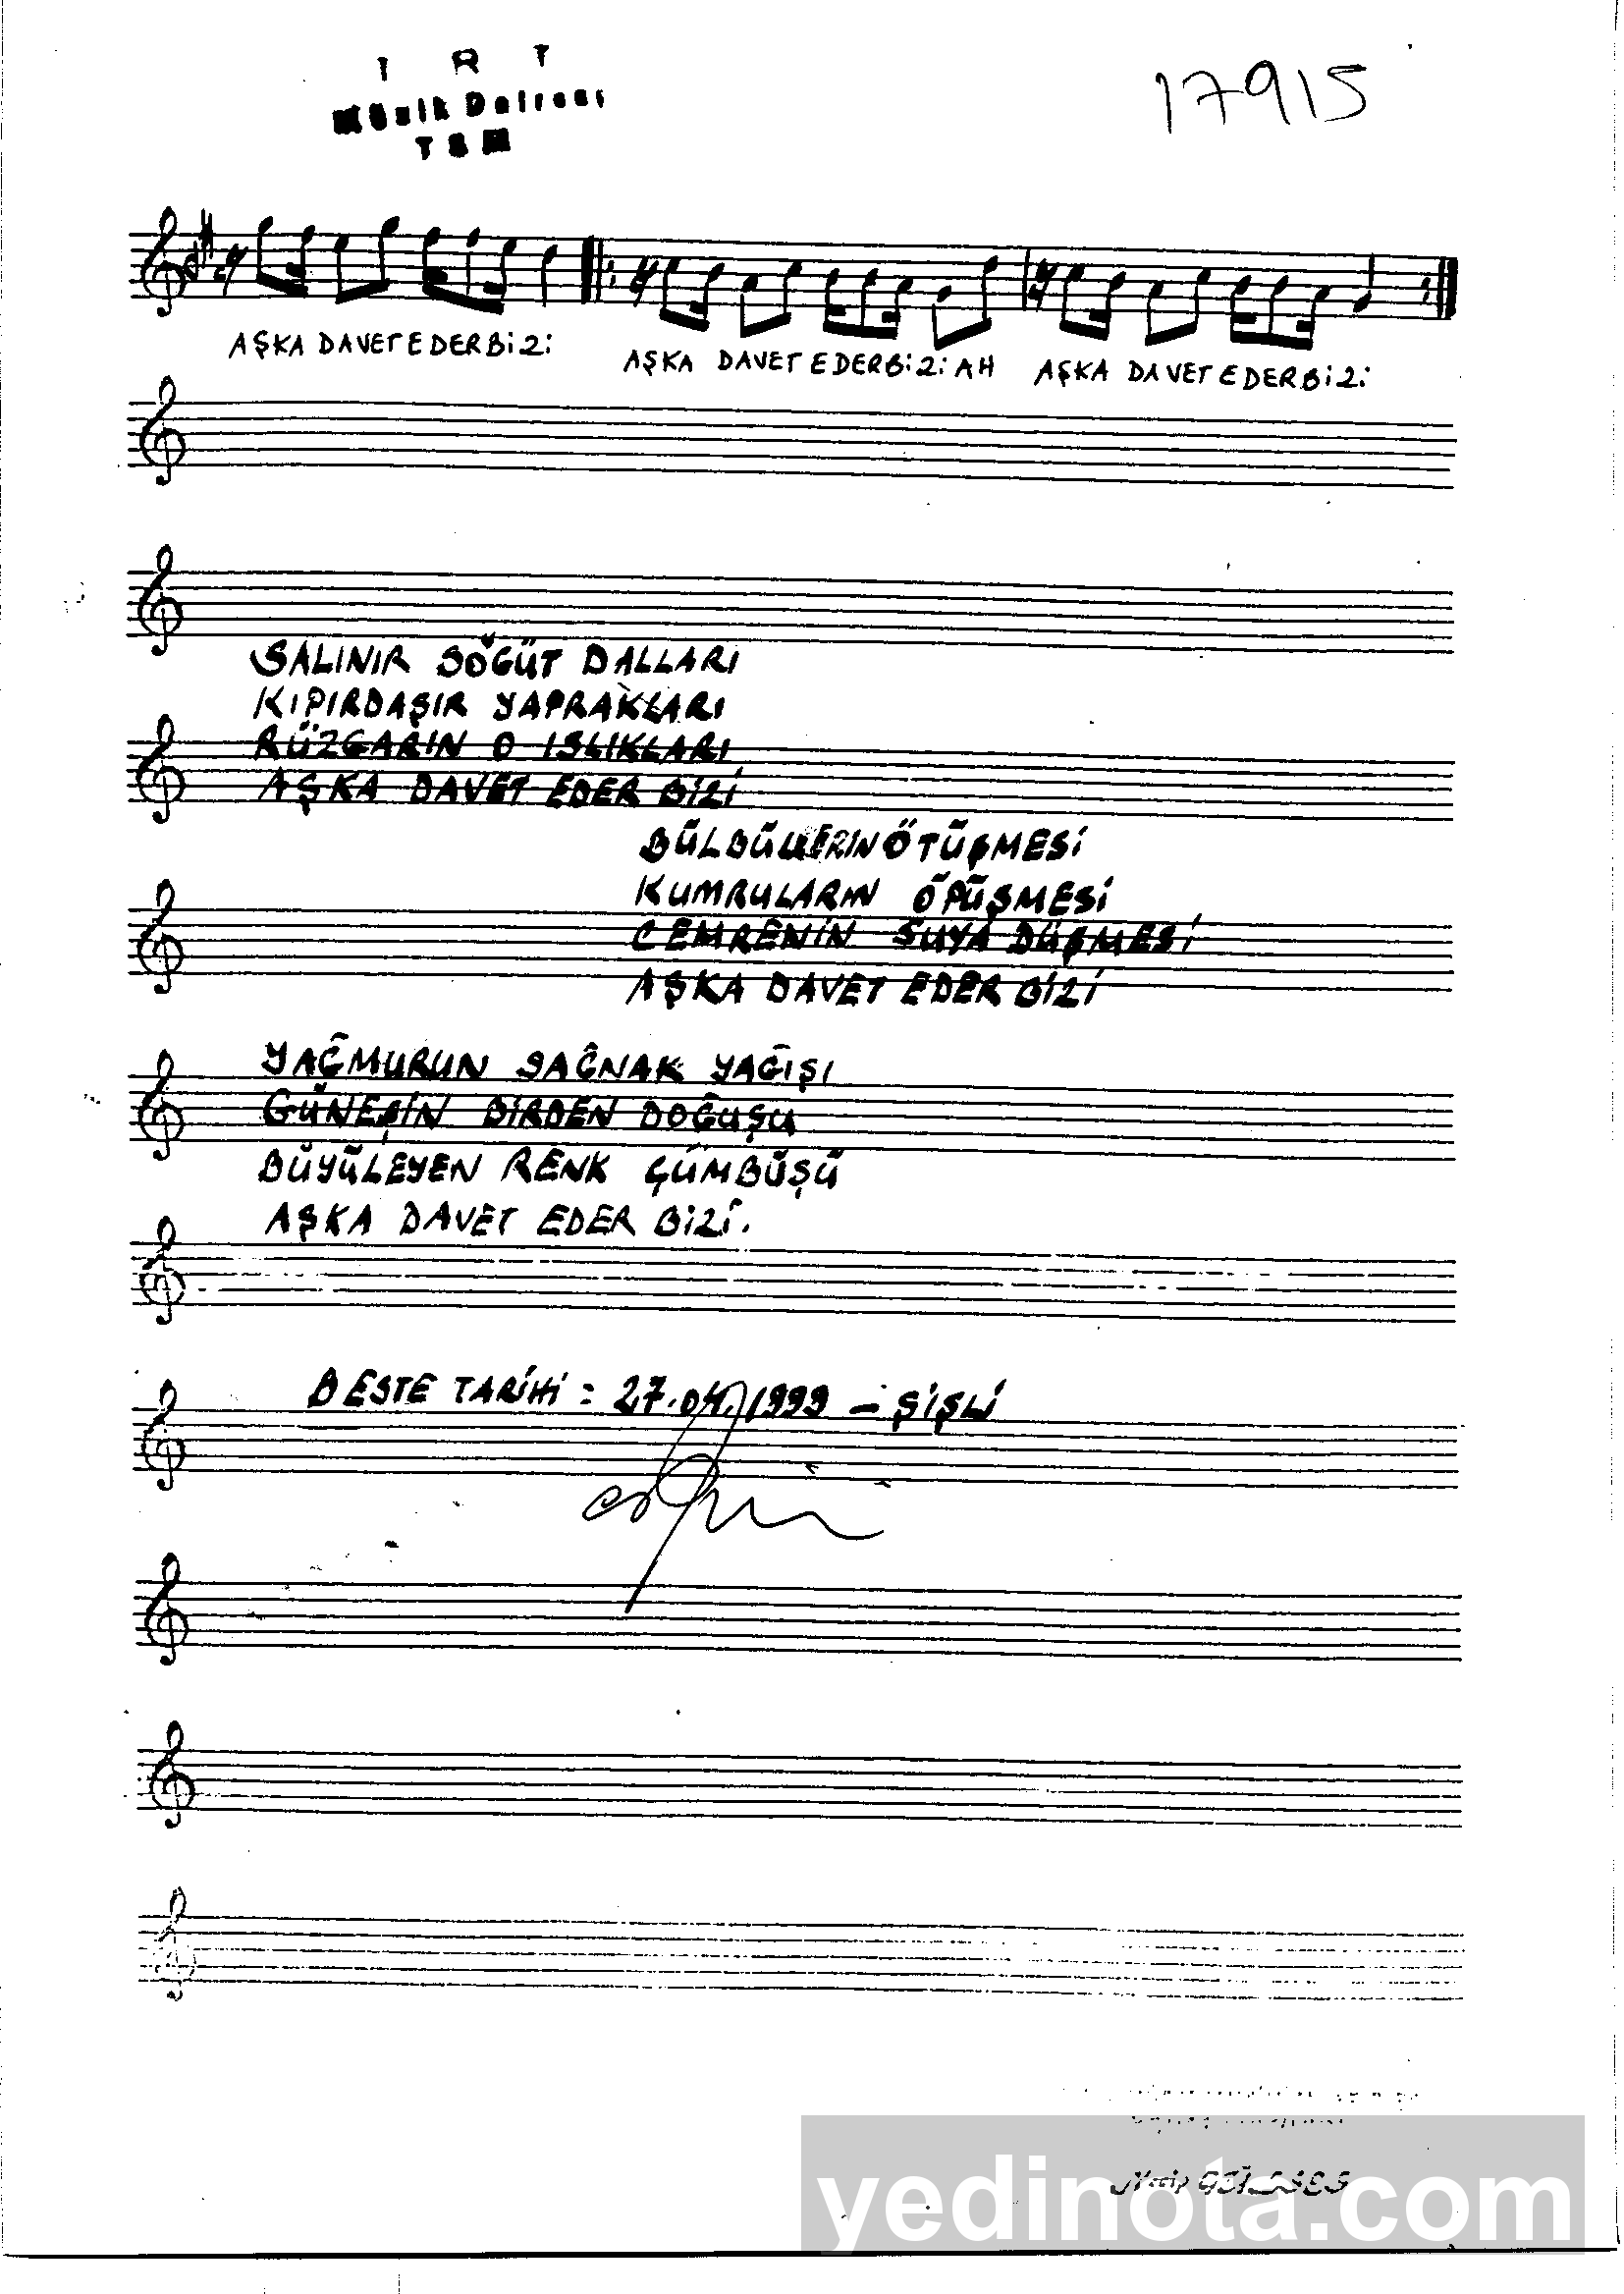 T R T
Müzik Dairesi
TSM
17915
AŞKA DAVET EDER BİZİ AŞKA DAVET EDER BİZİ AH AŞKA DAVET EDER BİZİ
SALINIR SÖĞÜT DALLARI
KIPIRDAŞIR YAPRAKLARI
RÜZGARIN O ISLIKLARI
AŞKA DAVET EDER BİZİ
BÜLBÜLLERİN ÖTÜŞMESİ
KUMRULARIN ÖPÜŞMESİ
CEMRENİN SUYA DÜŞMESİ
AŞKA DAVET EDER BİZİ
YAĞMURUN SAĞNAK YAĞIŞI
GÜNEŞİN BİRDEN DOĞUŞU
BÜYÜLEYEN RENK ÇÜMBÜŞÜ
AŞKA DAVET EDER BİZİ.
BESTE TARİHİ : 27.04.1999 - ŞİŞLİ
yedinota.com